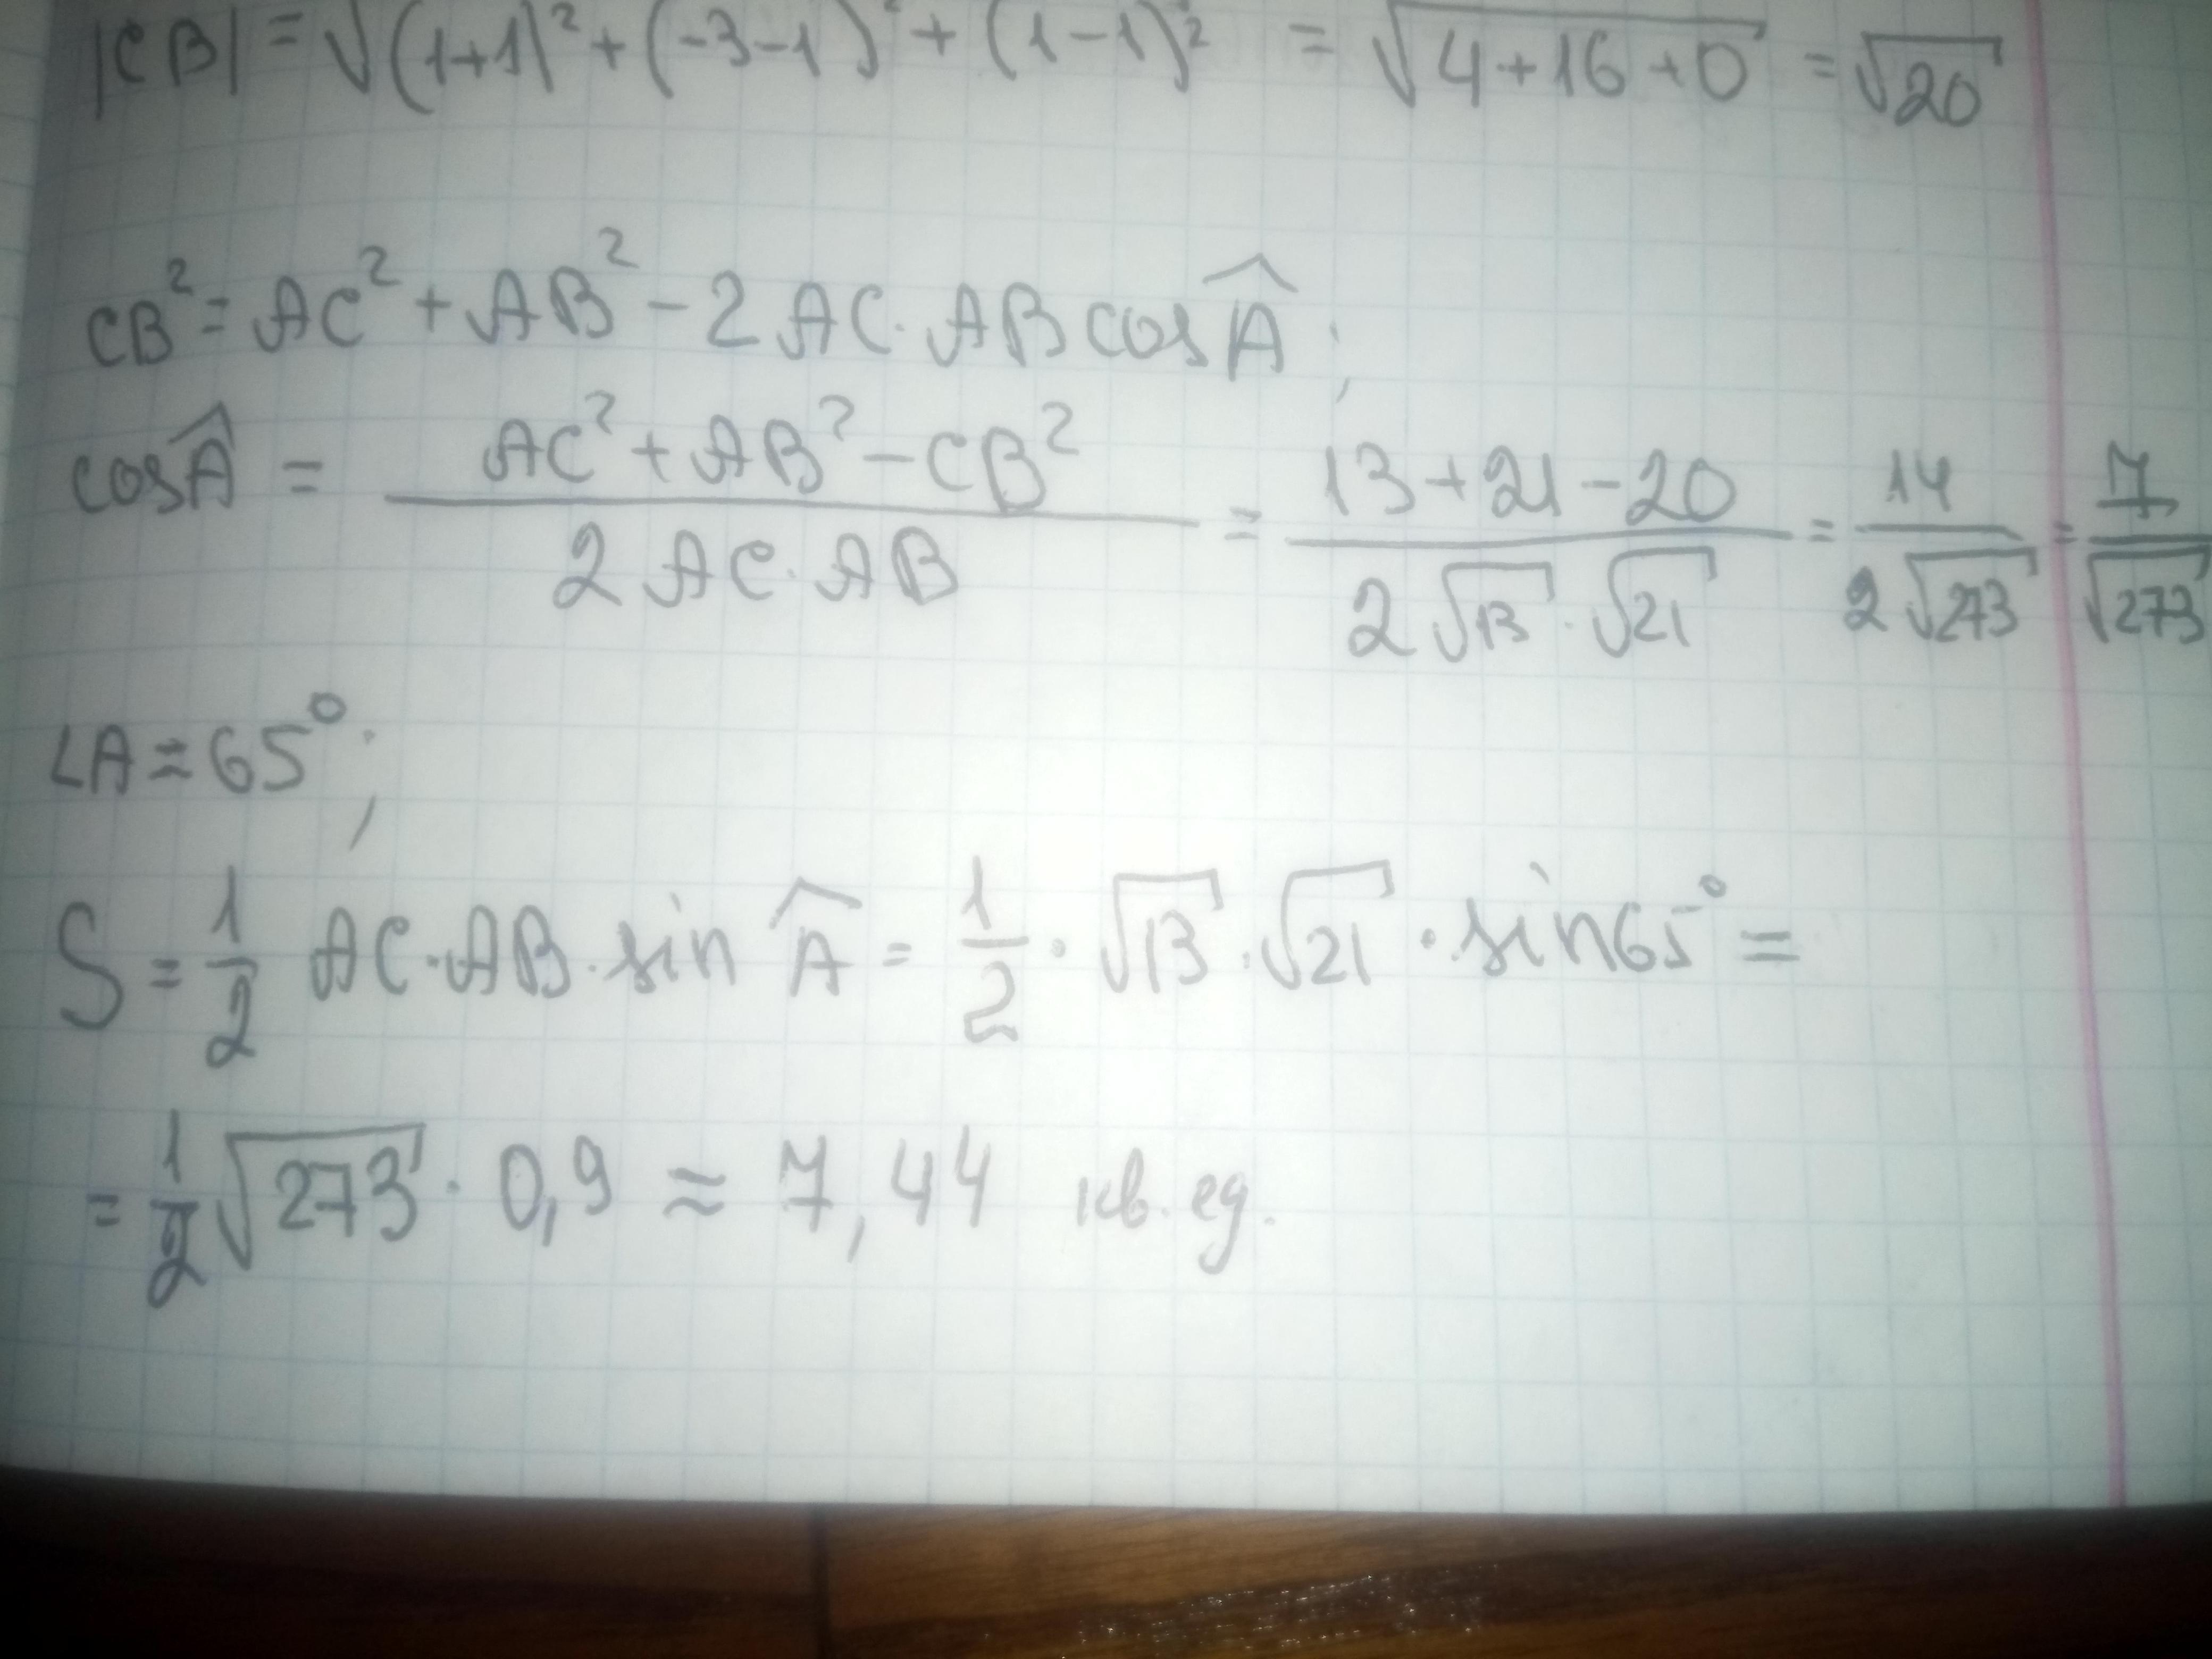 |CB| = √(1+1)² + (-3-1)² + (1-1)² = √4+16+0 = √20
CB² = AC² + AB² - 2 AC · AB cos Â;
cos Â = (AC² + AB² - CB²) / (2 AC · AB) = (13+21-20) / (2√13 · √21) = 14 / (2√273) = 7 / √273
∠A ≈ 65°;
S = 1/2 AC · AB · sin Â = 1/2 · √13 · √21 · sin 65° =
= 1/2 √273 · 0,9 ≈ 7,44 кв. ед.